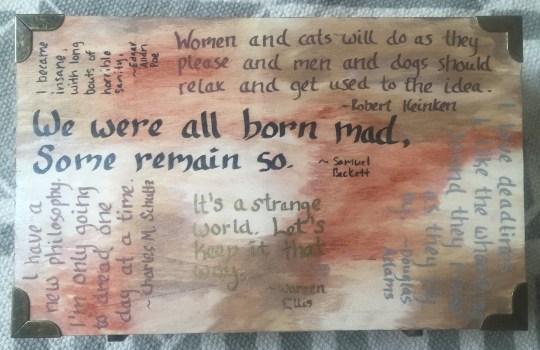 I became
insane,
with long
bouts of
horrible
sanity.
~Edgar
Allan
Poe
Women and cats will do as they
please and men and dogs should
relax and get used to the idea.
~Robert Heinken
We were all born mad,
Some remain so.
~ Samuel
Beckett
I have a
new philosophy.
I'm only going
to dread one
day at a time.
~Charles M. Schultz
It's a strange
World. Let's
Keep it that
way.
~Warren
Ellis
I love deadlines
I like the whooshing
sound they make
as they fly
by. ~Douglas
Adams